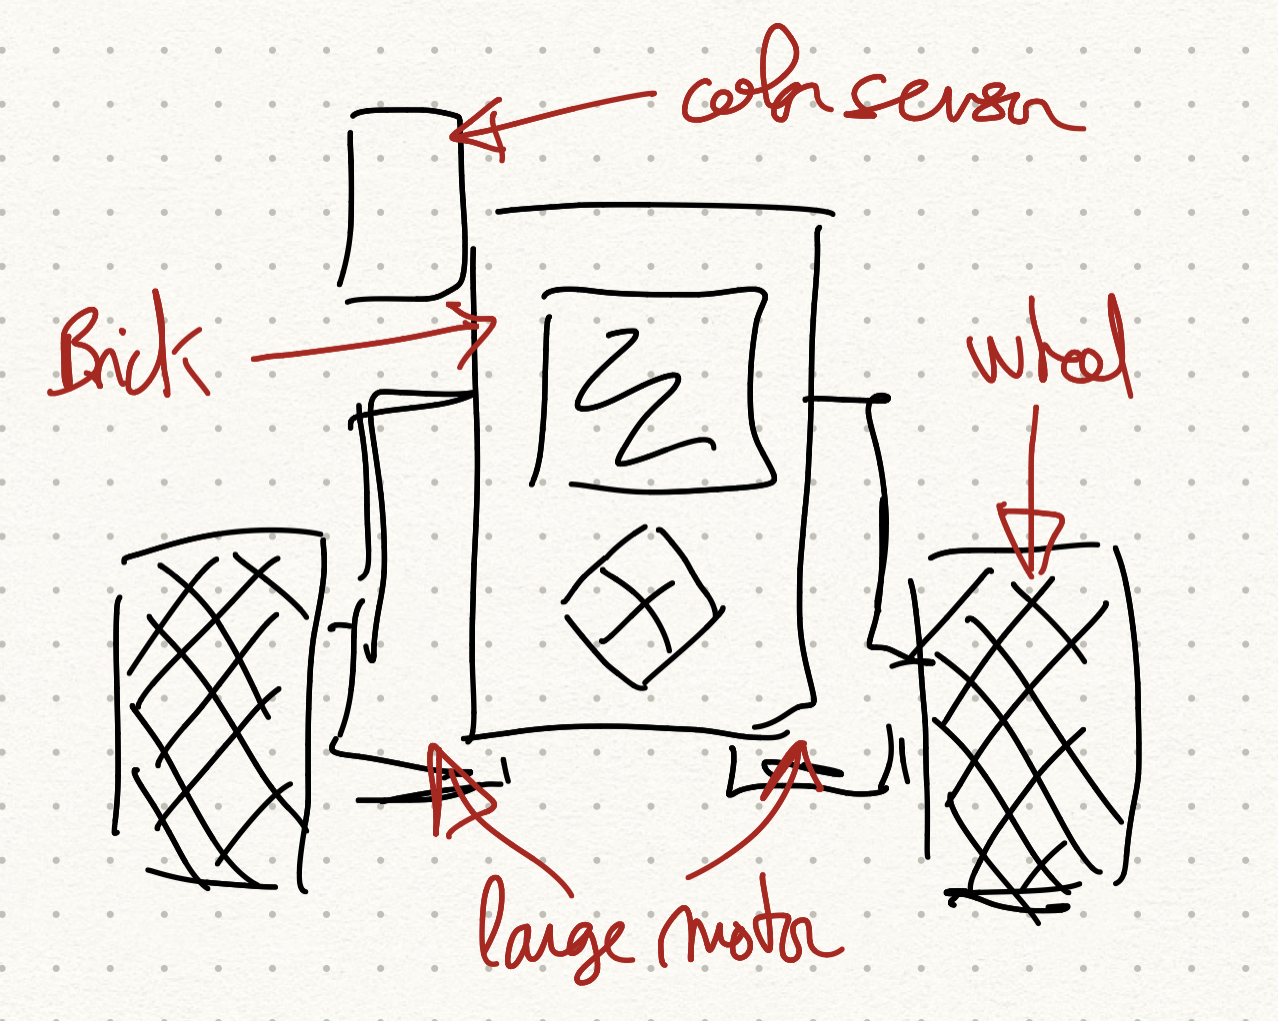 color sensor
Brick
wheel
large motor